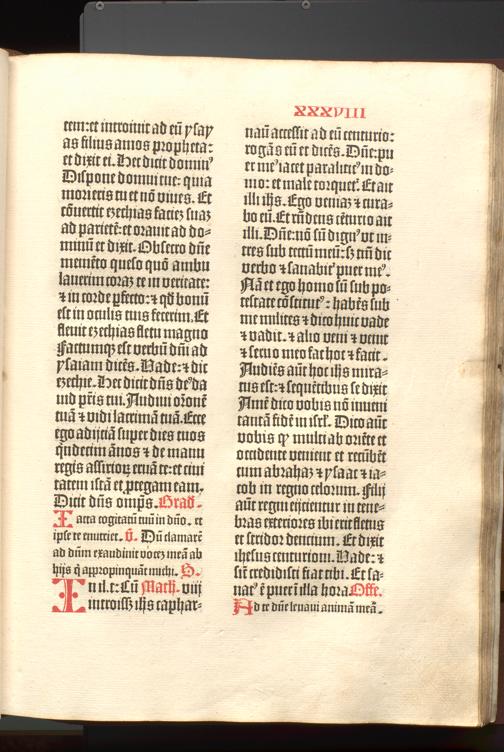 XXXVIII
tem: et introiuit ad eū ysay
as filius amos propheta:
et dixit ei. Hec dicit domin⁹
Dispone domui tue: quia
morieris tu et nō viues. Et
cōuertit ezechias faciē suaȝ
ad parietē: et orauit ad do-
minū et dixit. Obsecro dñe
memēto queso quō ambu
lauerim coraȝ te in veritate:
⁊ in corde ꝑfecto: ⁊ qď bonū
est in oculis tuis fecerim. Et
fleuit ezechias fletu magno
Factumqȝ est verbū dñi ad
ysaiam dicēs. Vade: ⁊ dic
ezechie. Hec dicit dñs de⁹ da
uid pr̄is tui. Audiui or̄onē
tuā ⁊ vidi lacrimā tuā. Ecce
ego adijciā super dies tuos
q̄ndecim ānos ⁊ de manu
regis assirioꝝ eruā te: et ciui
tatem istā et ꝓtegam eam.
Dicit dñs omp̄s. Grad̄.
Iacta cogitatū tuū in dño. et
ipse te enutriet. v̄. Dū clamarē
ad dñm exaudiuit vocē meā ab
hijs q̄ appropinquāt michi. S.
In il.t: Cū Math. viij
introissȝ ihs caphar-
naū accessit ad eū centurio:
rogās eū et dicēs. Dñe: pu
er me⁹ iacet paraliticꝰ in do-
mo: et male torquet᷑. Et ait
illi ihs. Ego veniā ⁊ cura-
bo eū. Et rn̄dens cēturio ait
illi. Dñe: nō sū dign⁹ vt in-
tres sub tectū meū: sȝ tm̄ dic
verbo ⁊ sanabit᷑ puer me⁹.
Nā et ego homo sū sub po-
testate cōstitut⁹: habēs sub
me milites ⁊ dico huic vade
⁊ vadit. ⁊ alio veni ⁊ venit
⁊ seruo meo fac hoc ⁊ facit.
Audiēs aūt hoc ihs mira-
tus est: ⁊ sequētibus se dixit
Amē dico vobis nō inueni
tantā fidē in isrl̄. Dico aūt
vobis qꝫ multi ab oriēte et
occidente venient et recūbēt
cum abrahaȝ ⁊ ysaac ⁊ ia-
cob in regno celorum. Filij
aūt regni eijcientur in tene-
bras exteriores ibi erit fletus
et stridor dencium. Et dixit
ihesus centurioni. Vade: ⁊
sic̄ credidisti fiat tibi. Et sa-
nat⁹ ē puer ī illa hora. Offe.
Ad te dñe leuaui animā meā.